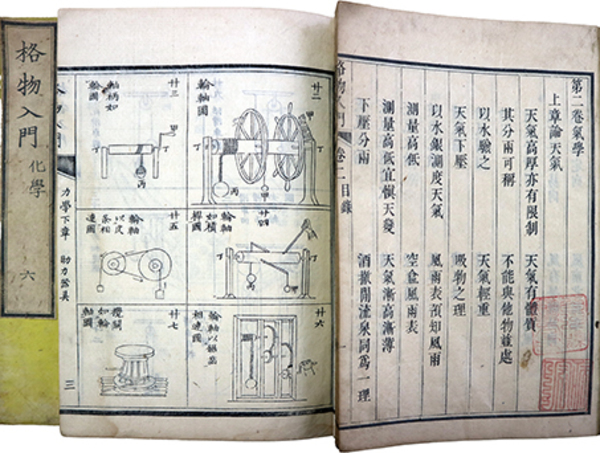 格物入門
化學
六
廿二
輪軸圖
廿三
軸柄如
輪圖
廿四
輪軸
如槓
桿圖
廿五
輪軸
以皮
条相
連圖
廿六
輪軸以鋸齒
相連圖
廿七
如輪
圖
力學下章
助力器具
三
格物入門
卷二目錄
第二卷氣學
上章論天氣
天氣高厚亦有限制 天氣有體質
其分兩可稱 不能與他物並處
以水驗之 天氣輕重
天氣下壓 吸物之理
以水銀測度天氣 風雨表預知風雨
測量高低 空盒風雨表
測量高低宜慎天變 天氣漸高漸薄
下壓分兩 酒撤閒流泉同爲一理